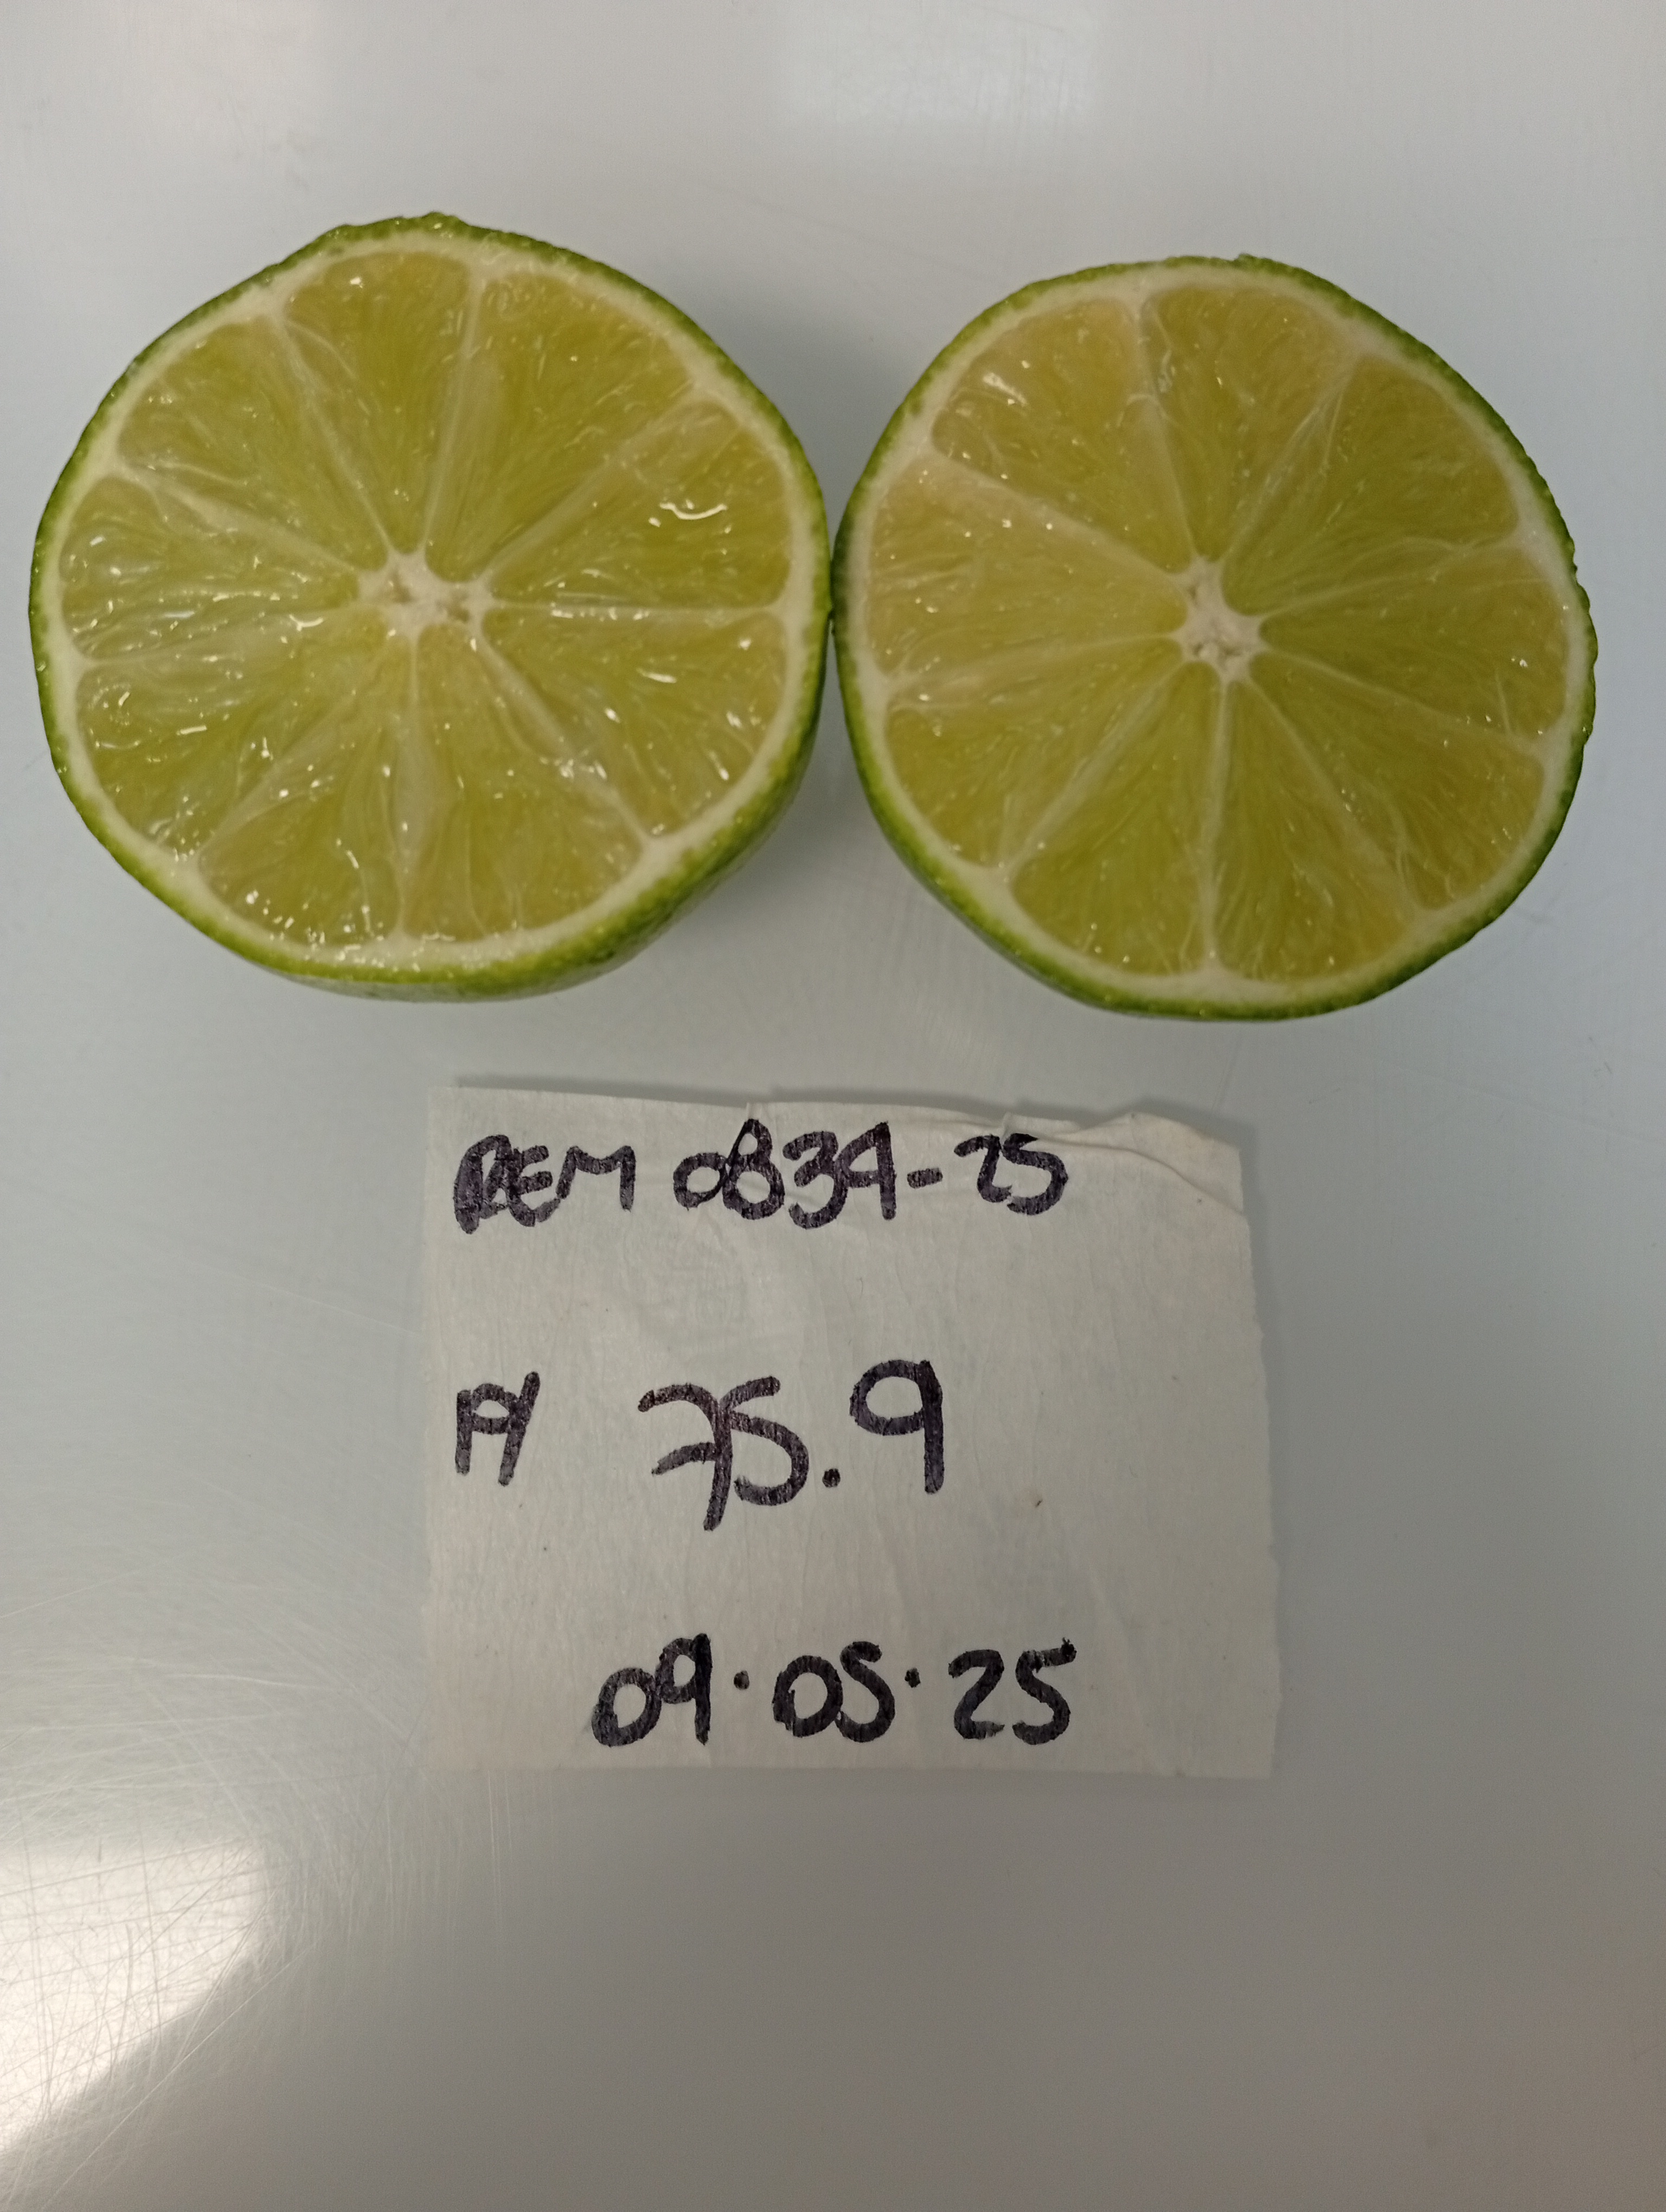 REM 0834-25
A 75.9
09.05.25